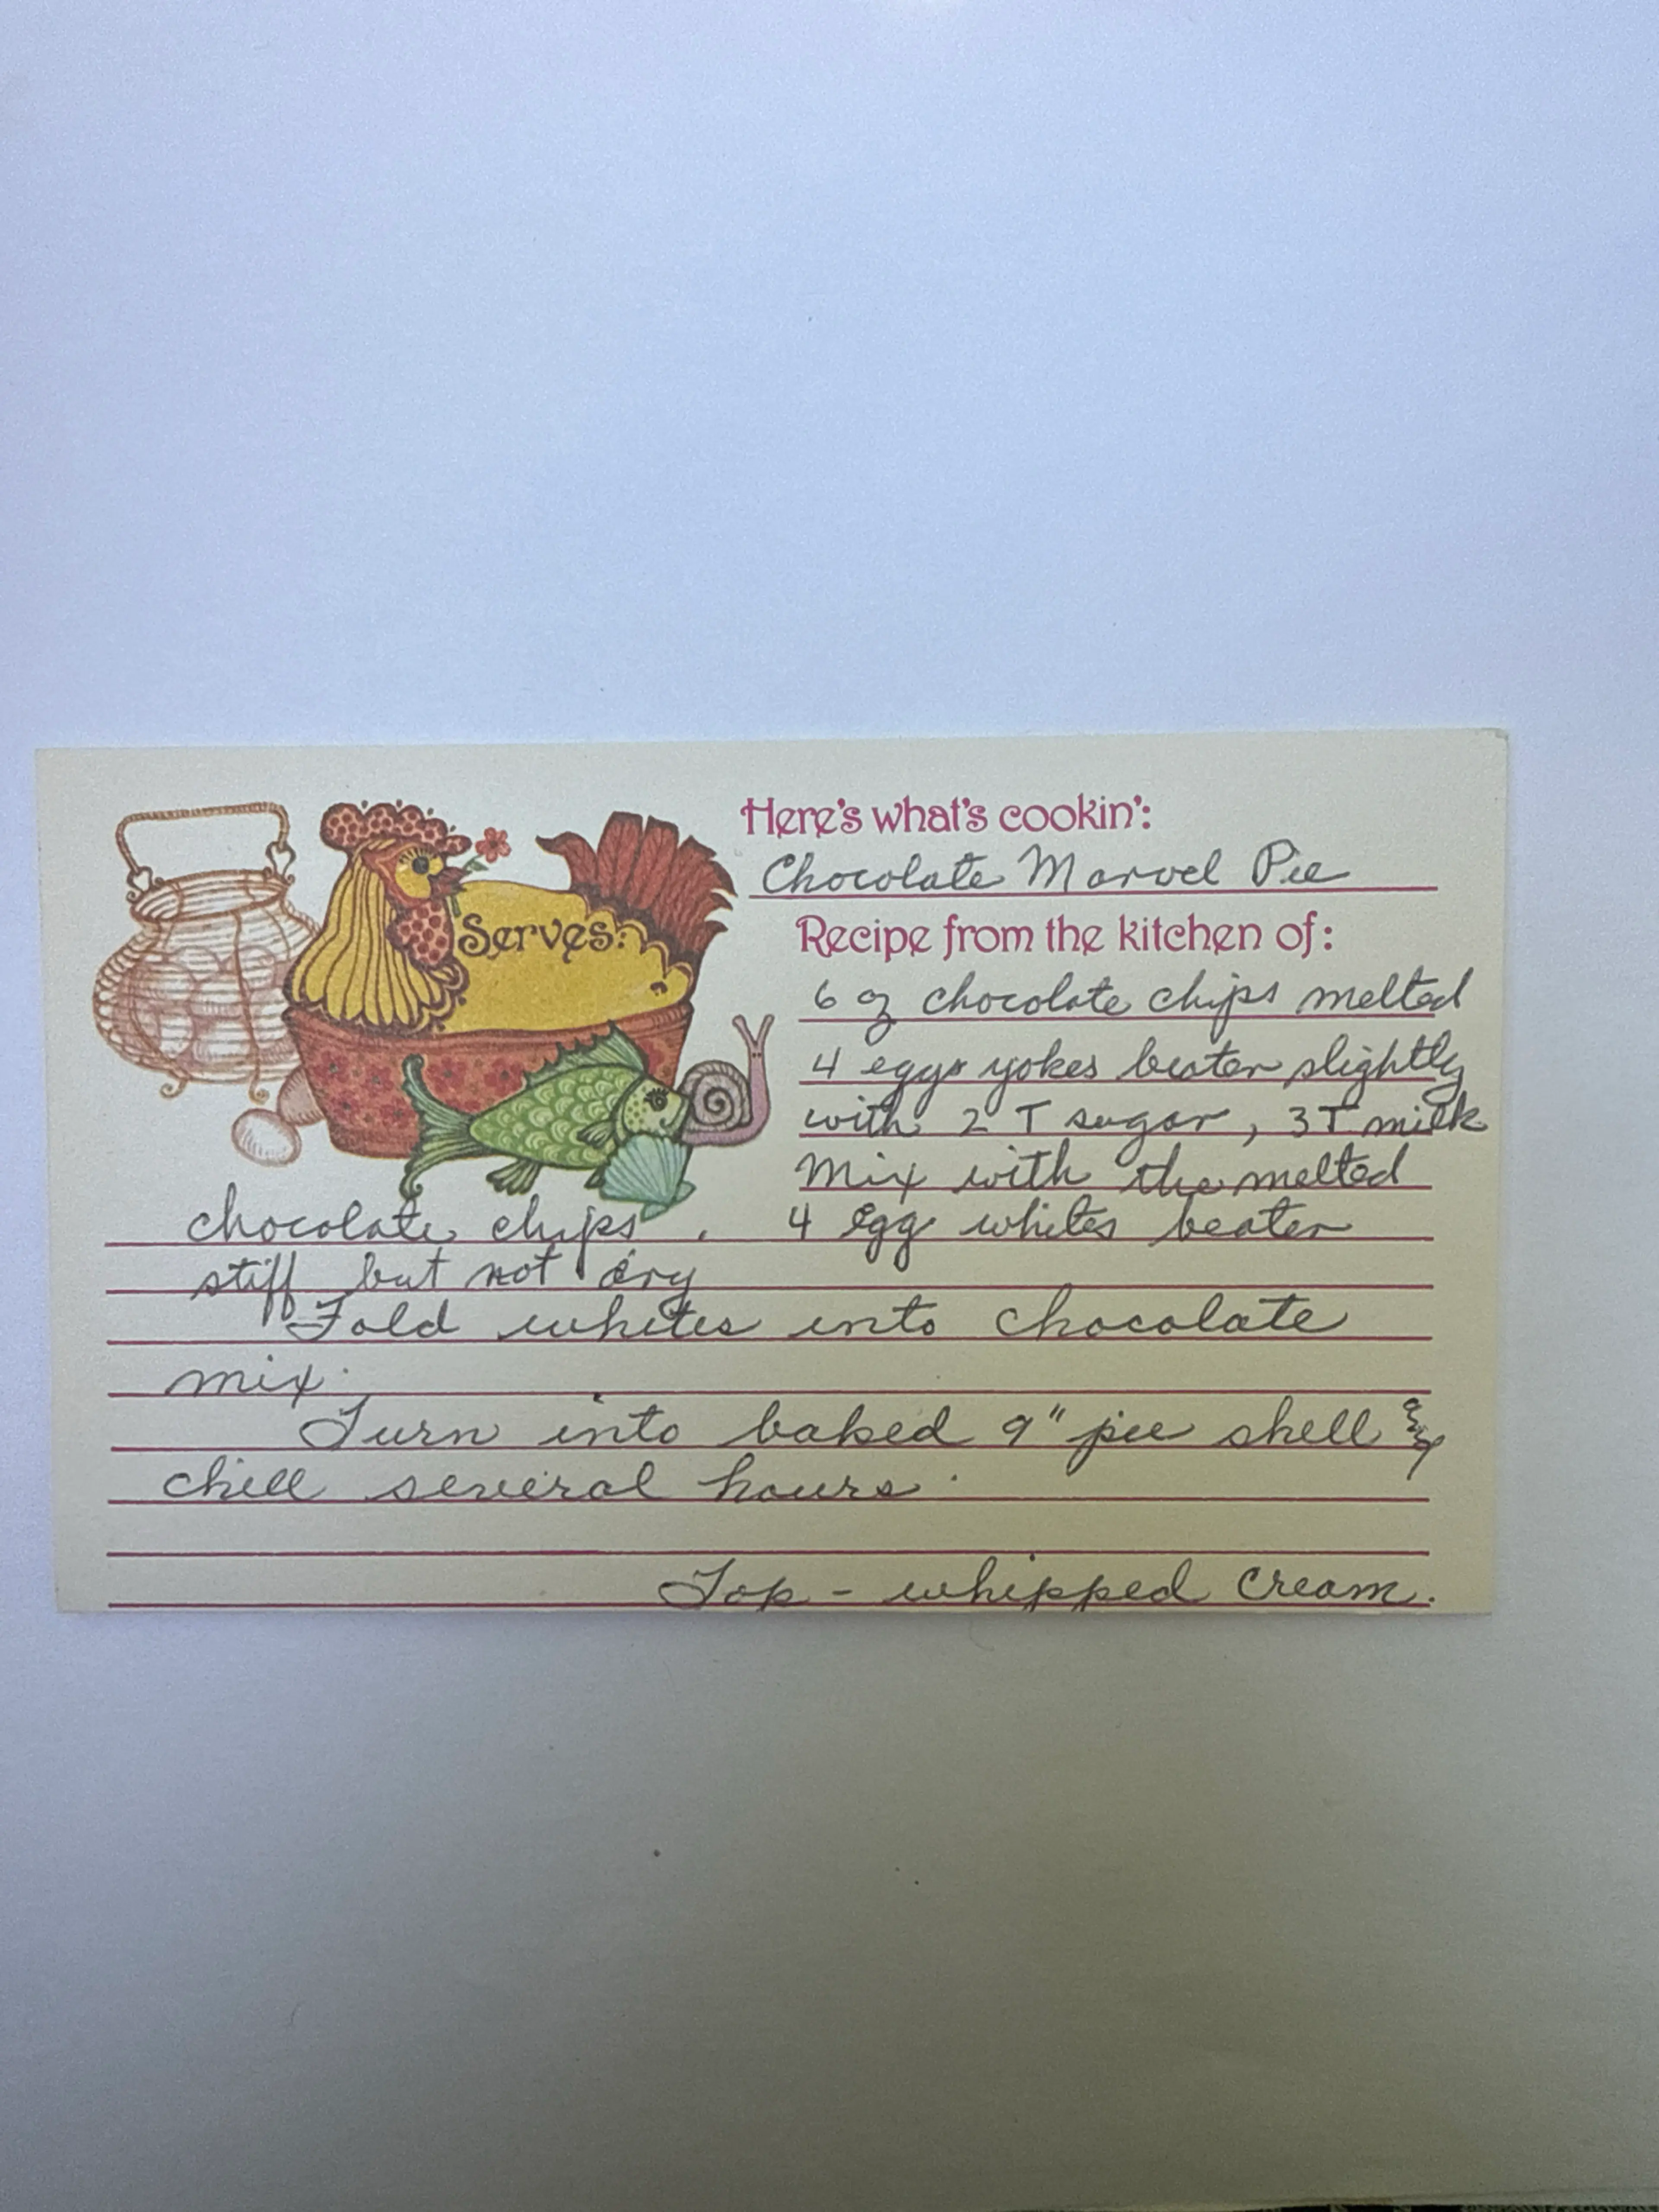 Here's what's cookin':
Chocolate Marvel Pie
Serves:
Recipe from the kitchen of:
6 oz chocolate chips melted
4 eggs yokes beaten slightly
with 2 T sugar, 3T milk
Mix with the melted
chocolate chips. 4 Egg whites beaten
stiff but not dry
Fold whites into chocolate
mix.
Turn into baked 9" pie shell &
chill several hours.
Top - whipped cream.